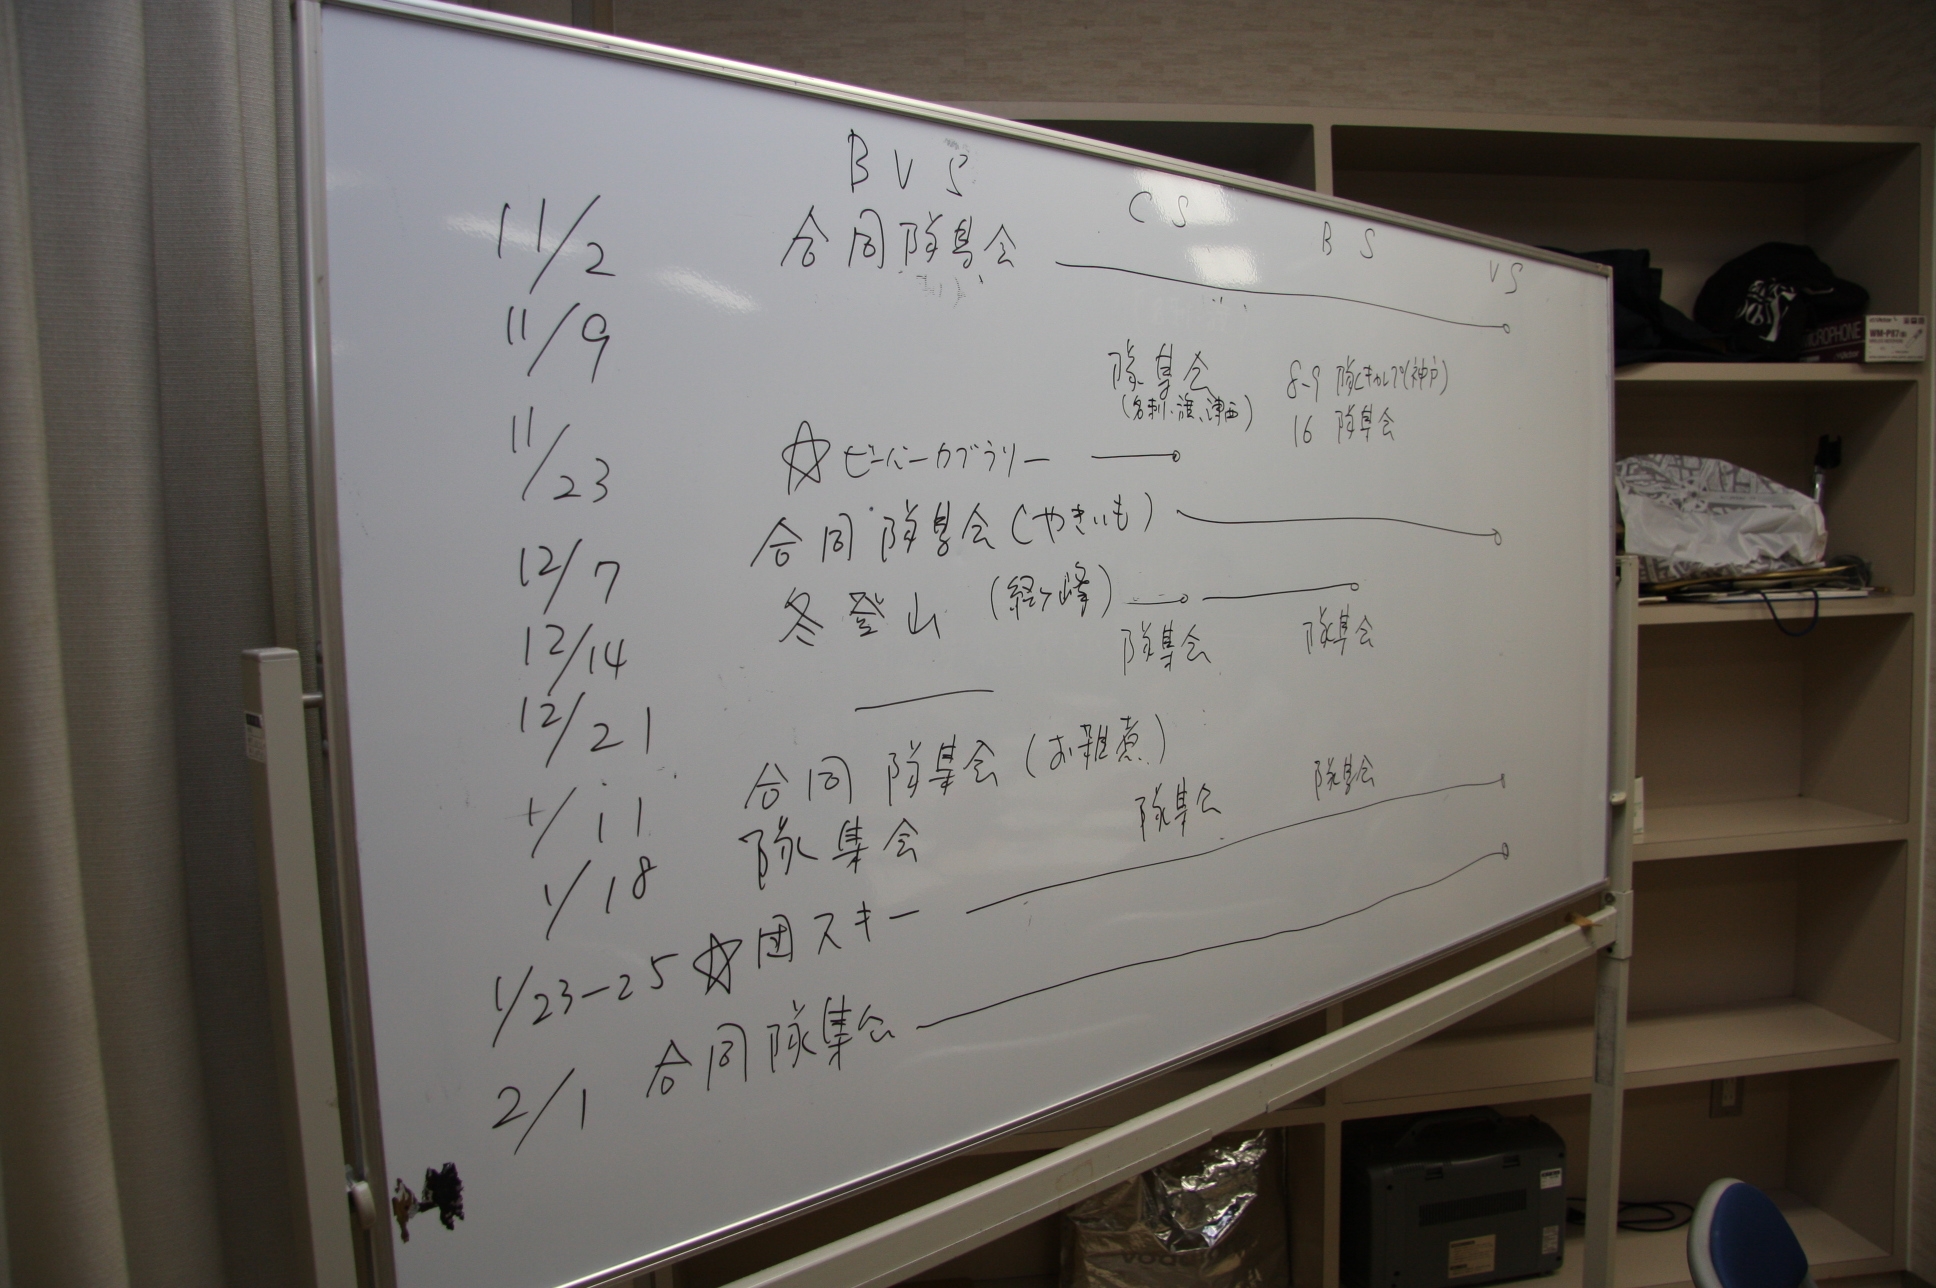 BVS CS BS VS
11/2 合同隊集会
11/9 隊集会 8-9 隊キャンプ(神戸)
(名刺、旗、津西) 16 隊集会
11/23 ☆ビーバーカブラリー
12/7 合同隊集会(やきいも)
12/14 冬登山 (経ヶ峰)
12/21 隊集会 隊集会
1/11 合同隊集会(お雑煮)
1/18 隊集会 隊集会 隊集会
1/23-25 ☆団スキー
2/1 合同隊集会
MICROPHONE
WM-P87